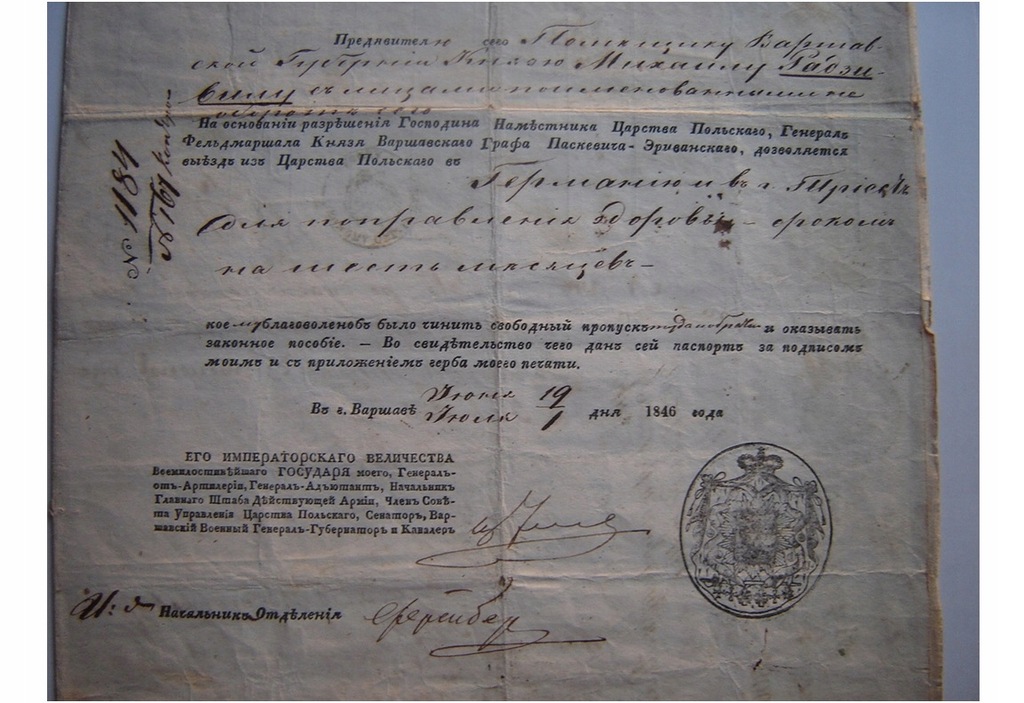 Предявителю сего Помѣщику Варшав-
ской Губерніи Князю Михаилу Радзи-
вилу съ лицами поименованными на
оборотѣ сего
На основаніи разрѣшенія Господина Намѣстника Царства Польскаго, Генералъ
Фельдмаршала Князя Варшавскаго Графа Паскевича-Эриванскаго, дозволяется
выѣздъ изъ Царства Польскаго въ
Германію и въ г. Тріестъ
для поправленія здоровья — срокомъ
на шесть мѣсяцевъ —
№ 1184
№ 167
кое му благоволеноъ было чинить свободный пропускъ туда и обратно и оказывать
законное пособіе. — Во свидѣтельство чего данъ сей паспортъ за подписомъ
моимъ и съ приложеніемъ герба моего печати.
Въ г. Варшавѣ Іюня 19 / Іюля 1 дня 1846 года
ЕГО ИМПЕРАТОРСКАГО ВЕЛИЧЕСТВА
Всемилостивѣйшаго ГОСУДАРЯ моего, Генералъ-
отъ-Артилеріи, Генералъ-Адъютантъ, Начальникъ
Главнаго Штаба Дѣйствующей Арміи, Членъ Совѣ-
та Управленія Царства Польскаго, Сенаторъ, Вар-
шавскій Военный Генералъ-Губернаторъ и Кавалеръ
И: д. Начальникъ Отдѣленія